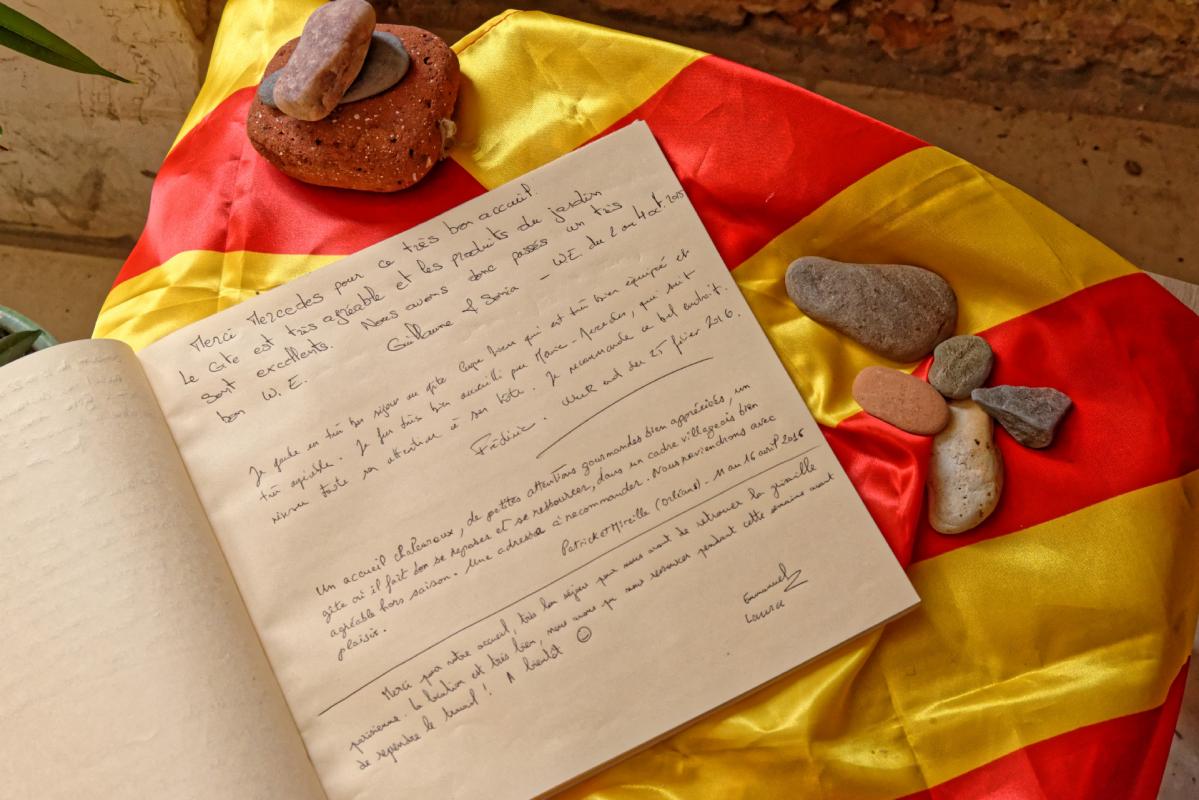 Merci Mercedes pour ce très bon accueil.
Le Gite est très agréable et les produits du jardin
sont excellents. Nous avons donc passés un très
bon W.E. Guillaume & Sonia - W.E. du 2 au 4 oct. 2015
Je garde un très bon séjour au gîte bien qui est très bien équipé et
très agréable. Je fus très bien accueilli par Marie-Mercedes, que suit
toute son attention à ses hôtes. Je recommande ce bel endroit.
Frédéric. Week end du 25 février 2016.
Un accueil chaleureux, de petites attentions gourmandes bien appréciées, un
gîte où il fait bon se reposer et se ressourcer, dans un cadre villageois bien
agréable hors saison. Une adresse à recommander. Nous reviendrons avec
plaisir. Patrick et Mireille (Orléans). 11 au 16 avril 2016
Merci pour votre accueil, très bon séjour pour nous avant de retrouver la grisaille
parisienne. La location est très bien, nous avons pu nous ressourcer pendant cette semaine avant
de reprendre le travail ! A bientôt ☺
Emmanuel
Laura